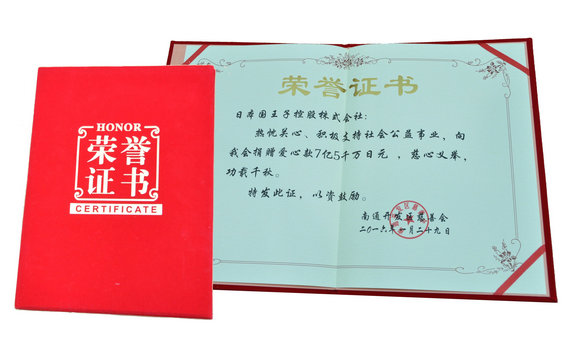 HONOR
荣誉
证书
CERTIFICATE
荣誉证书
日本国王子控股株式会社:
热忱关心、积极支持社会公益事业,向
我会捐赠爱心款7亿5千万日元,慈心义举,
功载千秋。
特发此证,以资鼓励。
南通开发区慈善会
二〇一六年一月二十九日